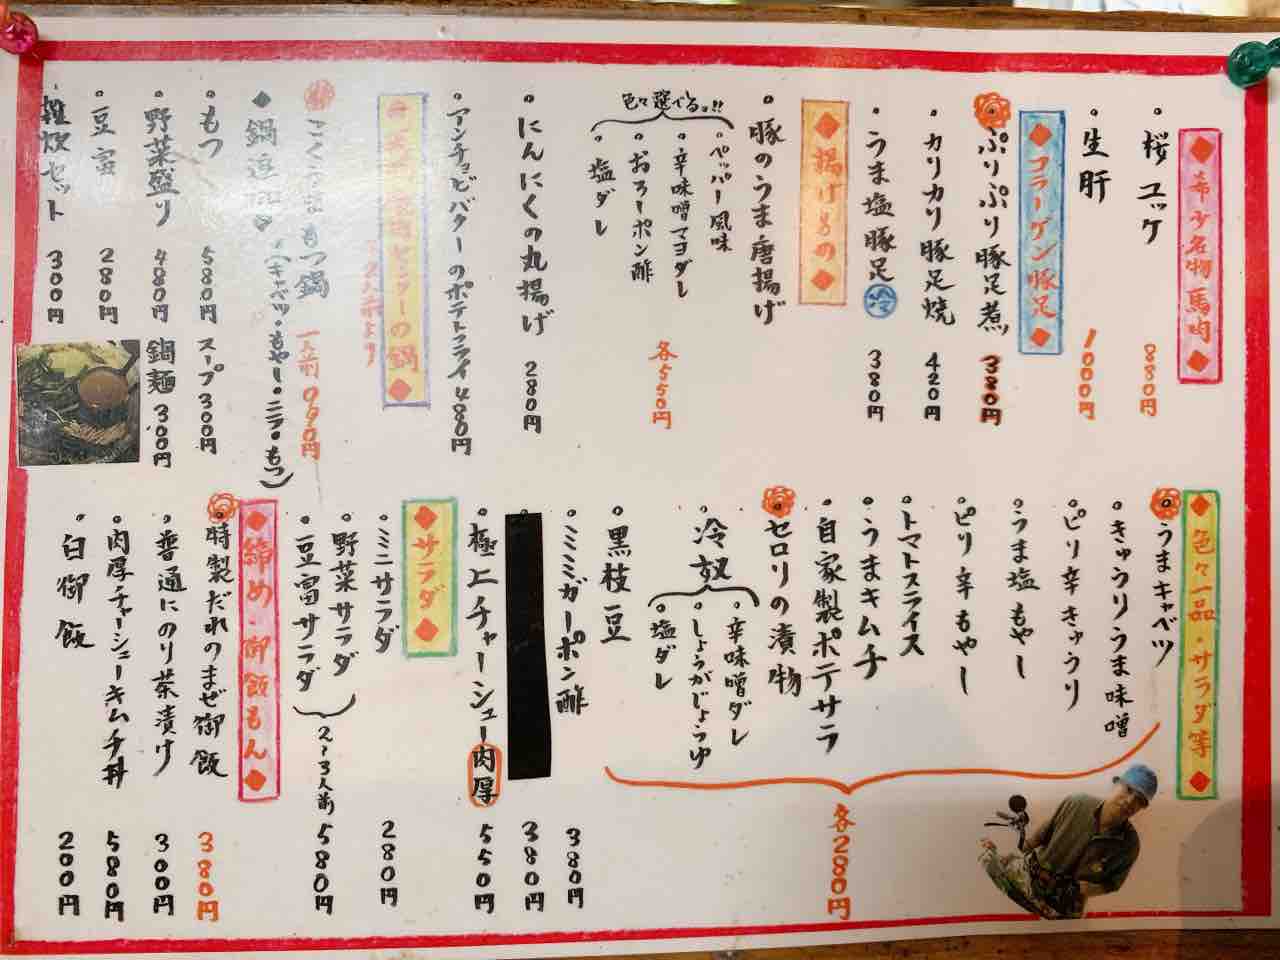 ◆希少名物 馬肉◆
・桜ユッケ 880円
・生肝 1000円
◆コラーゲン豚足◆
・ぷりぷり豚足煮 380円
・カリカリ豚足焼 420円
・うま塩豚足 冷 380円
◆揚げもの◆
・豚のうま唐揚げ
色々選べるっ!!
・ペッパー風味
・辛味噌マヨダレ
・おろしポン酢
・塩ダレ
各550円
・にんにくの丸揚げ 280円
・アンチョビバターのポテトフライ 480円
の鍋◆
2人前より
もつ鍋 一人前 990円
◆鍋追加◆(キャベツ・もやし・ニラ・もつ)
・もつ 580円 スープ 300円
・野菜盛り 480円 鍋麺 300円
・豆富 280円
・雑炊セット 300円
◆色々一品・サラダ等◆
・うまキャベツ
・きゅうりうま味噌
・ピリ辛きゅうり
・うま塩もやし
・ピリ辛もやし
・トマトスライス
・うまキムチ
・自家製ポテサラ
・セロリの漬物
・冷奴
・辛味噌ダレ
・しょうがじょうゆ
・塩ダレ
・黒枝豆
各280円
・ミミガーポン酢 380円
380円
・極上チャーシュー肉厚 550円
◆サラダ◆
・ミニサラダ 280円
・野菜サラダ
・豆富サラダ
2〜3人前 580円
◆締め・御飯もん◆
・特製だれのまぜ御飯 380円
・普通にのり茶漬け 300円
・肉厚チャーシューキムチ丼 580円
・白御飯 200円